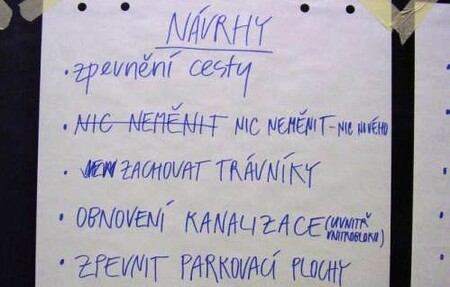 NÁVRHY
• zpevnění cesty
• NIC NEMĚNIT NIC NEMĚNIT - NIC NOVÉHO
• ZACHOVAT TRÁVNÍKY
• OBNOVENÍ KANALIZACE (UVNITŘ
VNITROBLOKU)
• ZPEVNIT PARKOVACÍ PLOCHY